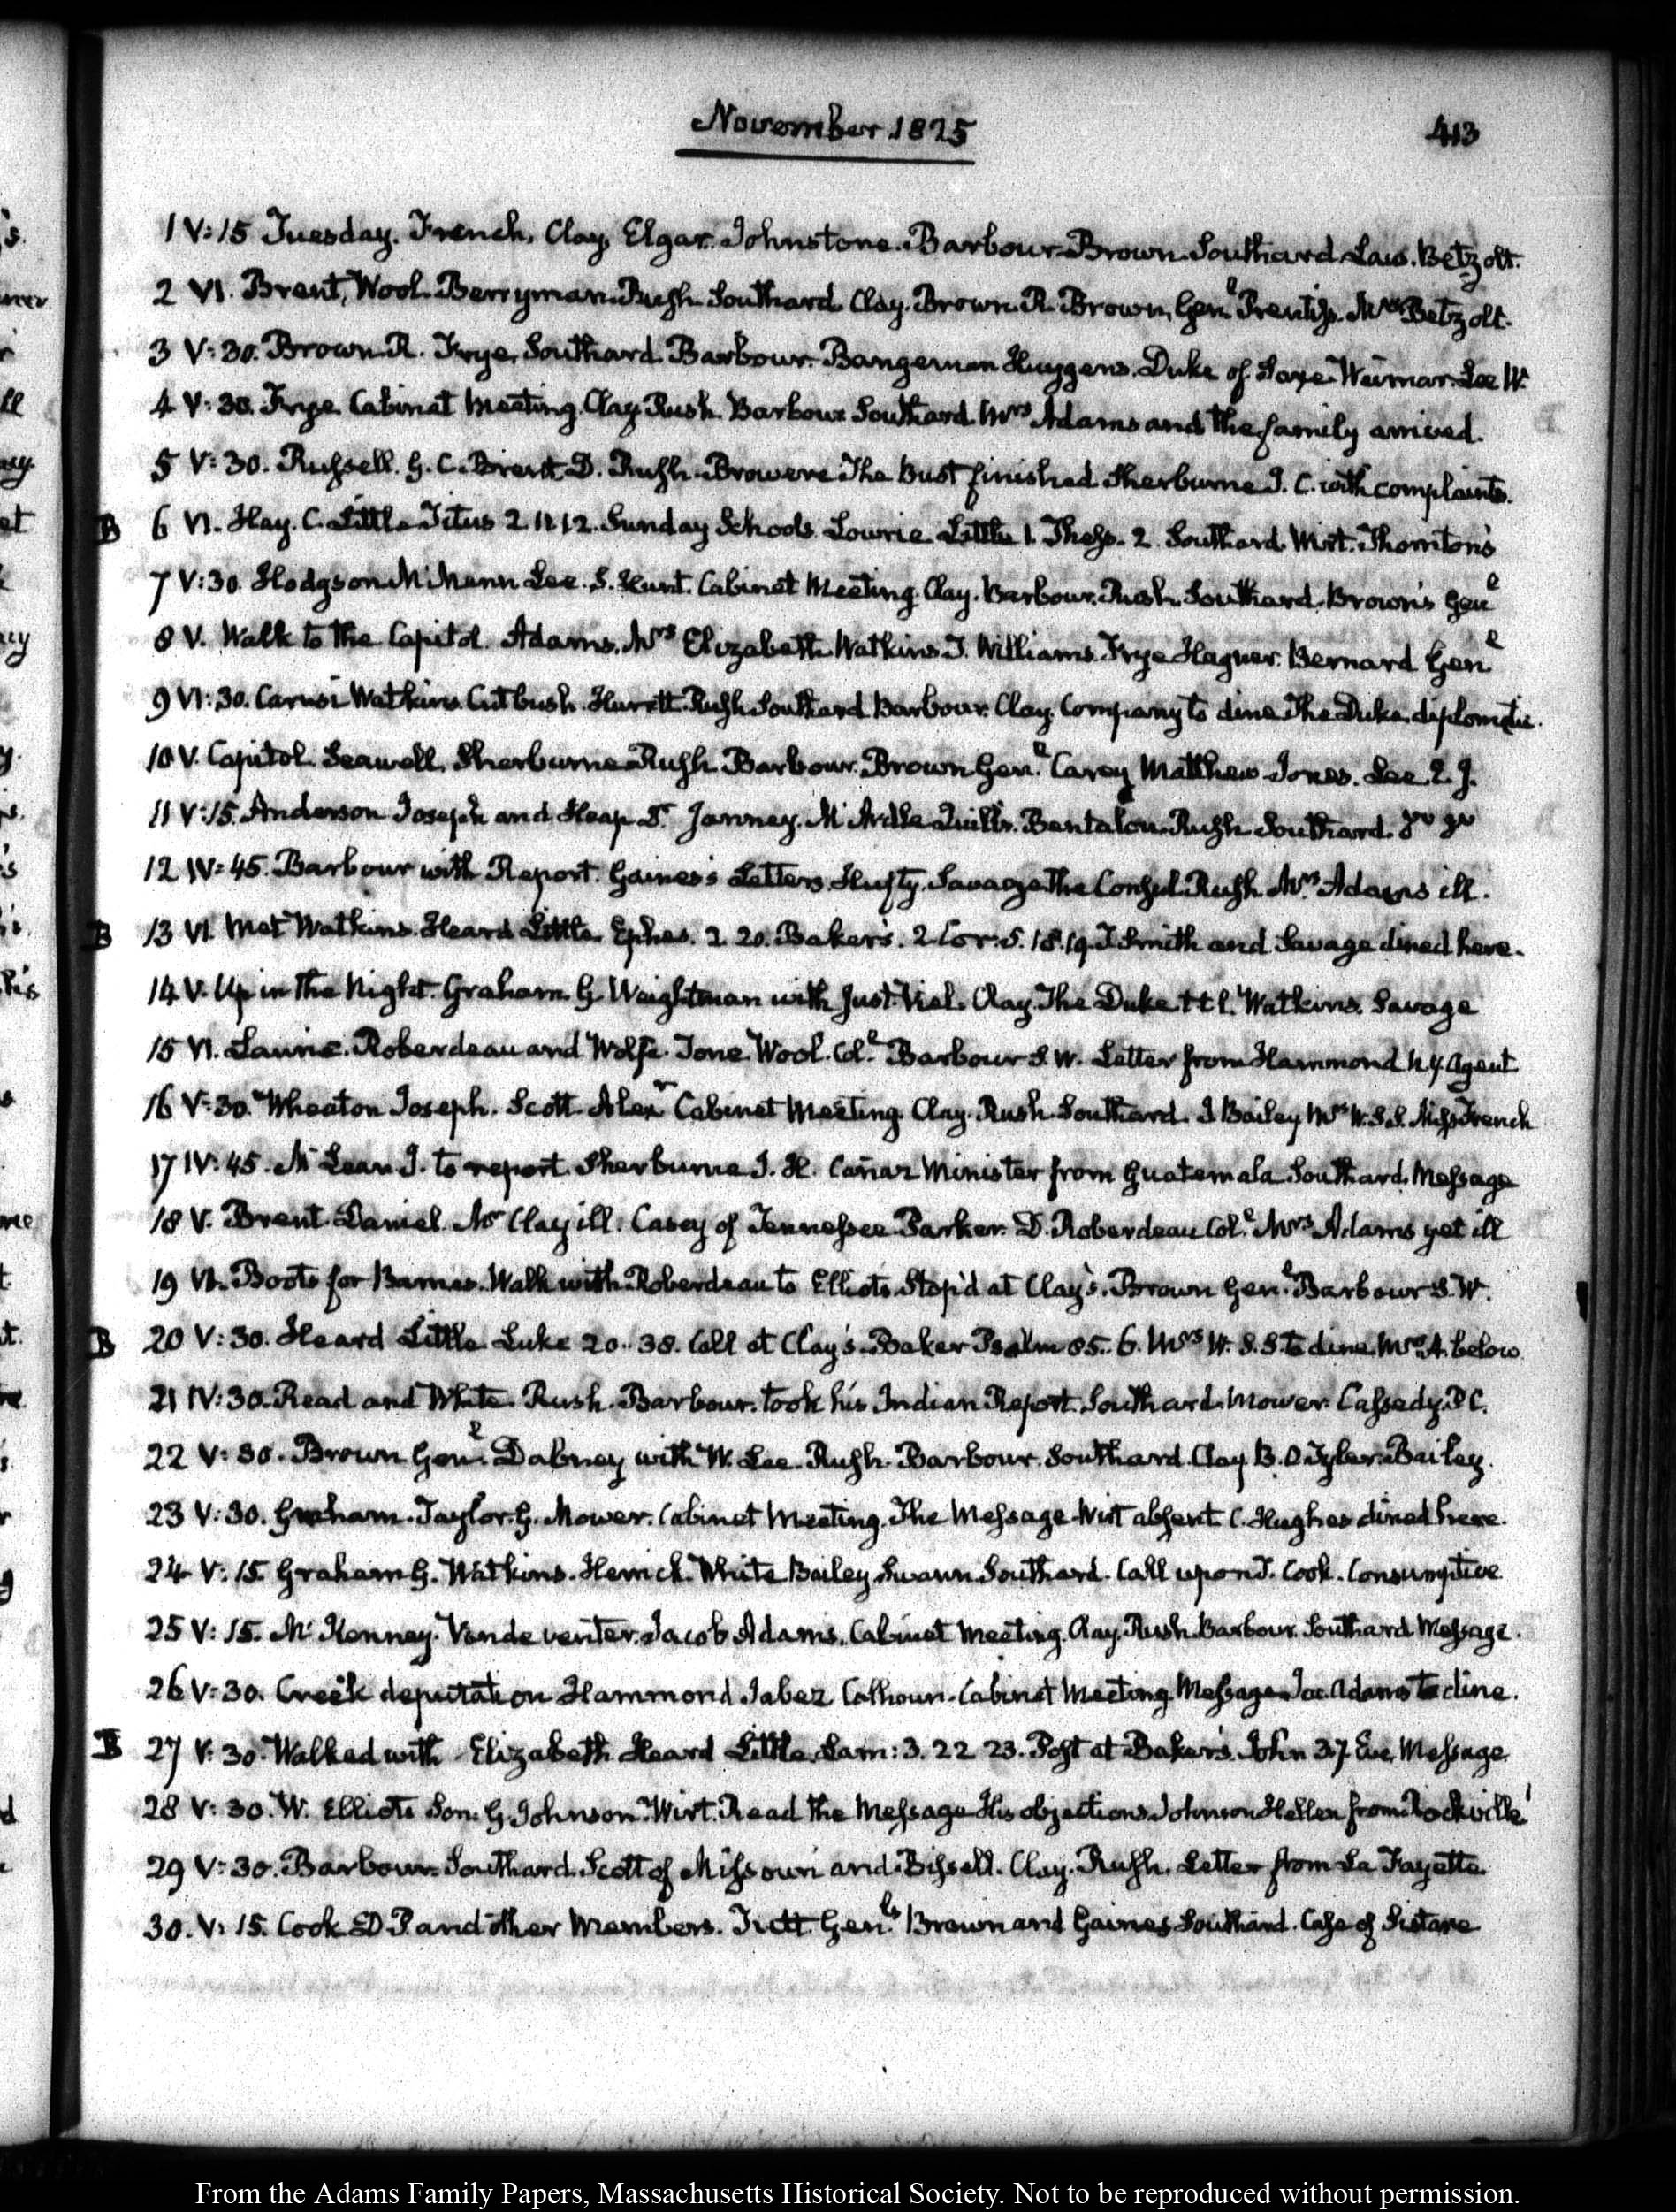 November 1825
413
1 V:15 Tuesday. French, Clay, Elgar. Johnstone. Barbour Brown. Southard Law. Betzolt.
2 VI. Brent, Wool Berryman Rush Southard Clay. Brown. R. Brown, Genl Prentiss. Mrs Betzolt.
3 V:30. Brown. R. Frye, Southard Barbour. Bangeman Huygens. Duke of Saxe-Weimar. Lee W.
4 V:30. Frye. Cabinet Meeting. Clay Rush Barbour Southard. Mrs Adams and the family arrived.
5 V:30. Russell. G. C. Brent. D. Rush. Browere The bust finished Sherburne J. C. with complaints.
B 6 VI. Hay. C. Little Titus 2. 11 12. Sunday Schools. Lowrie. Little 1. Thess. 2. Southard. Wirt. Thornton's
7 V:30. Hodgson McMann Lee. S. Hunt. Cabinet Meeting. Clay. Barbour. Rush. Southard. Brown's Genl
8 V. Walk to the Capitol. Adams. Mrs Elizabeth Watkins T. Williams. Frye Hagner. Bernard Genl
9 VI:30. Carusi Watkins. Cutbush. Rush Southard Barbour. Clay. Company to dine The Duke diplomatic.
10 V. Capitol. Seawell. Sherburne Rush Barbour. Brown Genl. Carey Matthew Jones. Lee. 2 J.
11 V:15. Anderson Joseph and Heap S. Janney. McArdle Quills. Bentalou Rush Southard.
12 IV:45. Barbour with Report. Gaines's Letters Savage The Consul Rush. Mrs Adams ill.
B 13 VI. Met Watkins. Heard Little. Ephes. 2. 20. Baker's. 2 Cor: 5. 18. 19. J Smith and Savage dined here.
14 V. Up in the Night. Graham. G. Weightman with Clay. The Duke t.t.l. Watkins. Savage
15 VI. Laurie. Roberdeau and Wolfe. Tone. Wool. Coll. Barbour S. W. Letter from Hammond N.Y. Agent
16 V:30. Wheaton Joseph. Scott. Alexr Cabinet Meeting. Clay. Rush. Southard. J Bailey Mrs W. S. S. Miss French
17 IV:45. McLean J. to report. Sherburne J. H. Cañaz Minister from Guatemala Southard. Message
18 V. Brent. Daniel. Mr Clay ill. Casey of Tennessee Parker. D. Roberdeau Coll. Mrs Adams yet ill
19 VI. Boots for Barnes. Walk with Roberdeau to Elliots. Stop'd at Clay's. Brown Genl. Barbour S. W.
B 20 V:30. Heard Little Luke 20. 38. Call at Clay's. Baker Psalm 85. 6. Mrs W. S. S. to dine. Mrs A. below.
21 IV:30. Read and White. Rush. Barbour. took his Indian Report. Southard. Mower. Cassedy. P C.
22 V:30. Brown Genl. Dabney with W. Lee. Rush. Barbour. Southard. Clay B. O Tyler. Bailey.
23 V:30. Graham. Taylor. G. Mower. Cabinet Meeting. The Message. Wirt absent. C. Hughes dined here.
24 V:15. Graham G. Watkins. Herrick. White Bailey Swann Southard. Call upon J. Cook. Consumptive
25 V:15. McKenney. Vandeventer. Jacob Adams. Cabinet Meeting. Clay. Rush. Barbour. Southard Message.
26 V:30. Creek deputation Hammond Jabez Calhoun. Cabinet Meeting. Message. Jac. Adams to dine.
B 27 V:30. Walked with Elizabeth Heard Little. Lam: 3. 22 23. Post at Baker's. John 3. 7. Eve. Message
28 V:30. W. Elliots Son. G. Johnson. Wirt. Read the Message His objections. Johnson Hellen from Rockville
29 V:30. Barbour. Southard. Scott of Missouri and Bissell. Clay. Rush. Letter from La Fayette
30. V:15. Cook D P. and other Members. Tutt. Genls. Brown and Gaines Southard. Case of Sistare
From the Adams Family Papers, Massachusetts Historical Society. Not to be reproduced without permission.